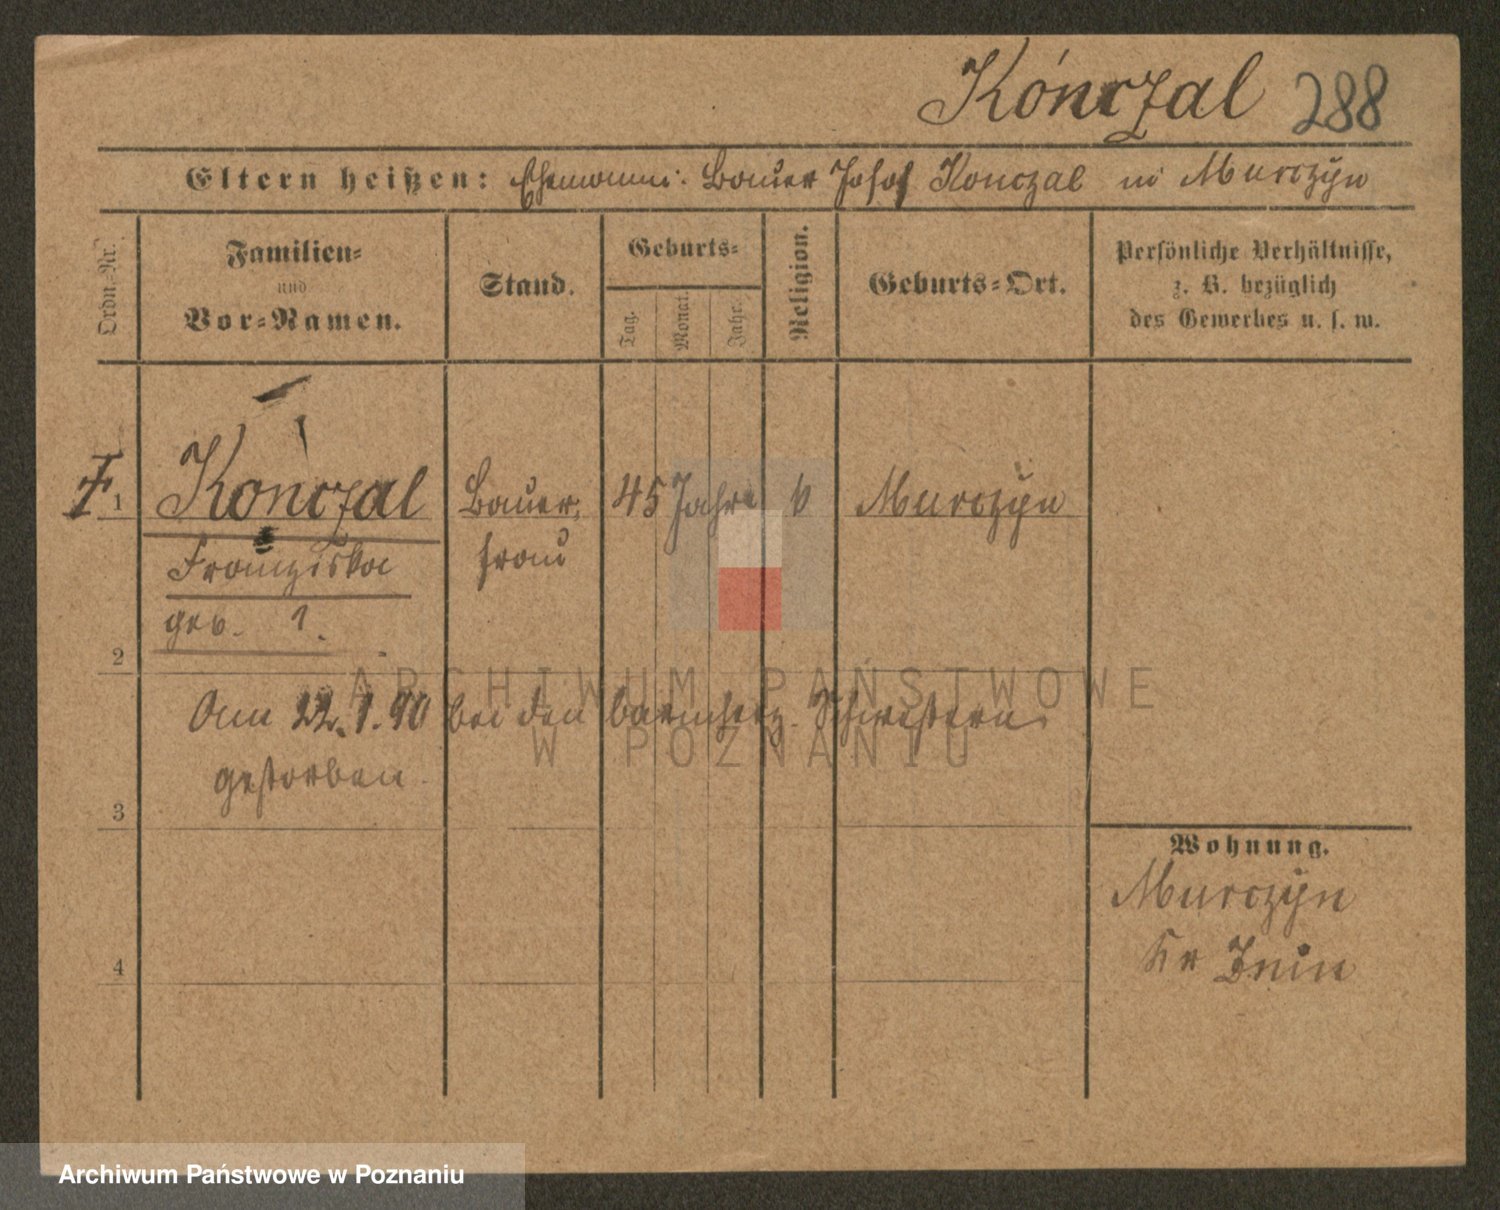 Kónczal 288
Eltern heißen: Ehemann: Bauer Josef Konczal in Murczyn
Ordn.-Nr.
Familien=
und
Vor=Namen.
Stand.
Geburts=
Tag.
Monat.
Jahr.
Religion.
Geburts=Ort.
Persönliche Verhältnisse,
z. B. bezüglich
des Gewerbes u. s. w.
1 Kónczal Bauer, 45 Jahre k Murczyn
Franziska frau
geb. ?.
2
Am 22.1.90 bei den barmherz. Schwestern
gestorben.
3
Wohnung.
Murczyn
Kr Znin
4
ARCHIWUM PAŃSTWOWE
W POZNANIU
Archiwum Państwowe w Poznaniu